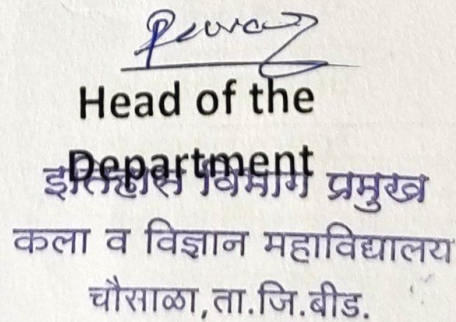 Head of the
Department
इतिहास विभाग प्रमुख
कला व विज्ञान महाविद्यालय
चौसाळा,ता.जि.बीड.